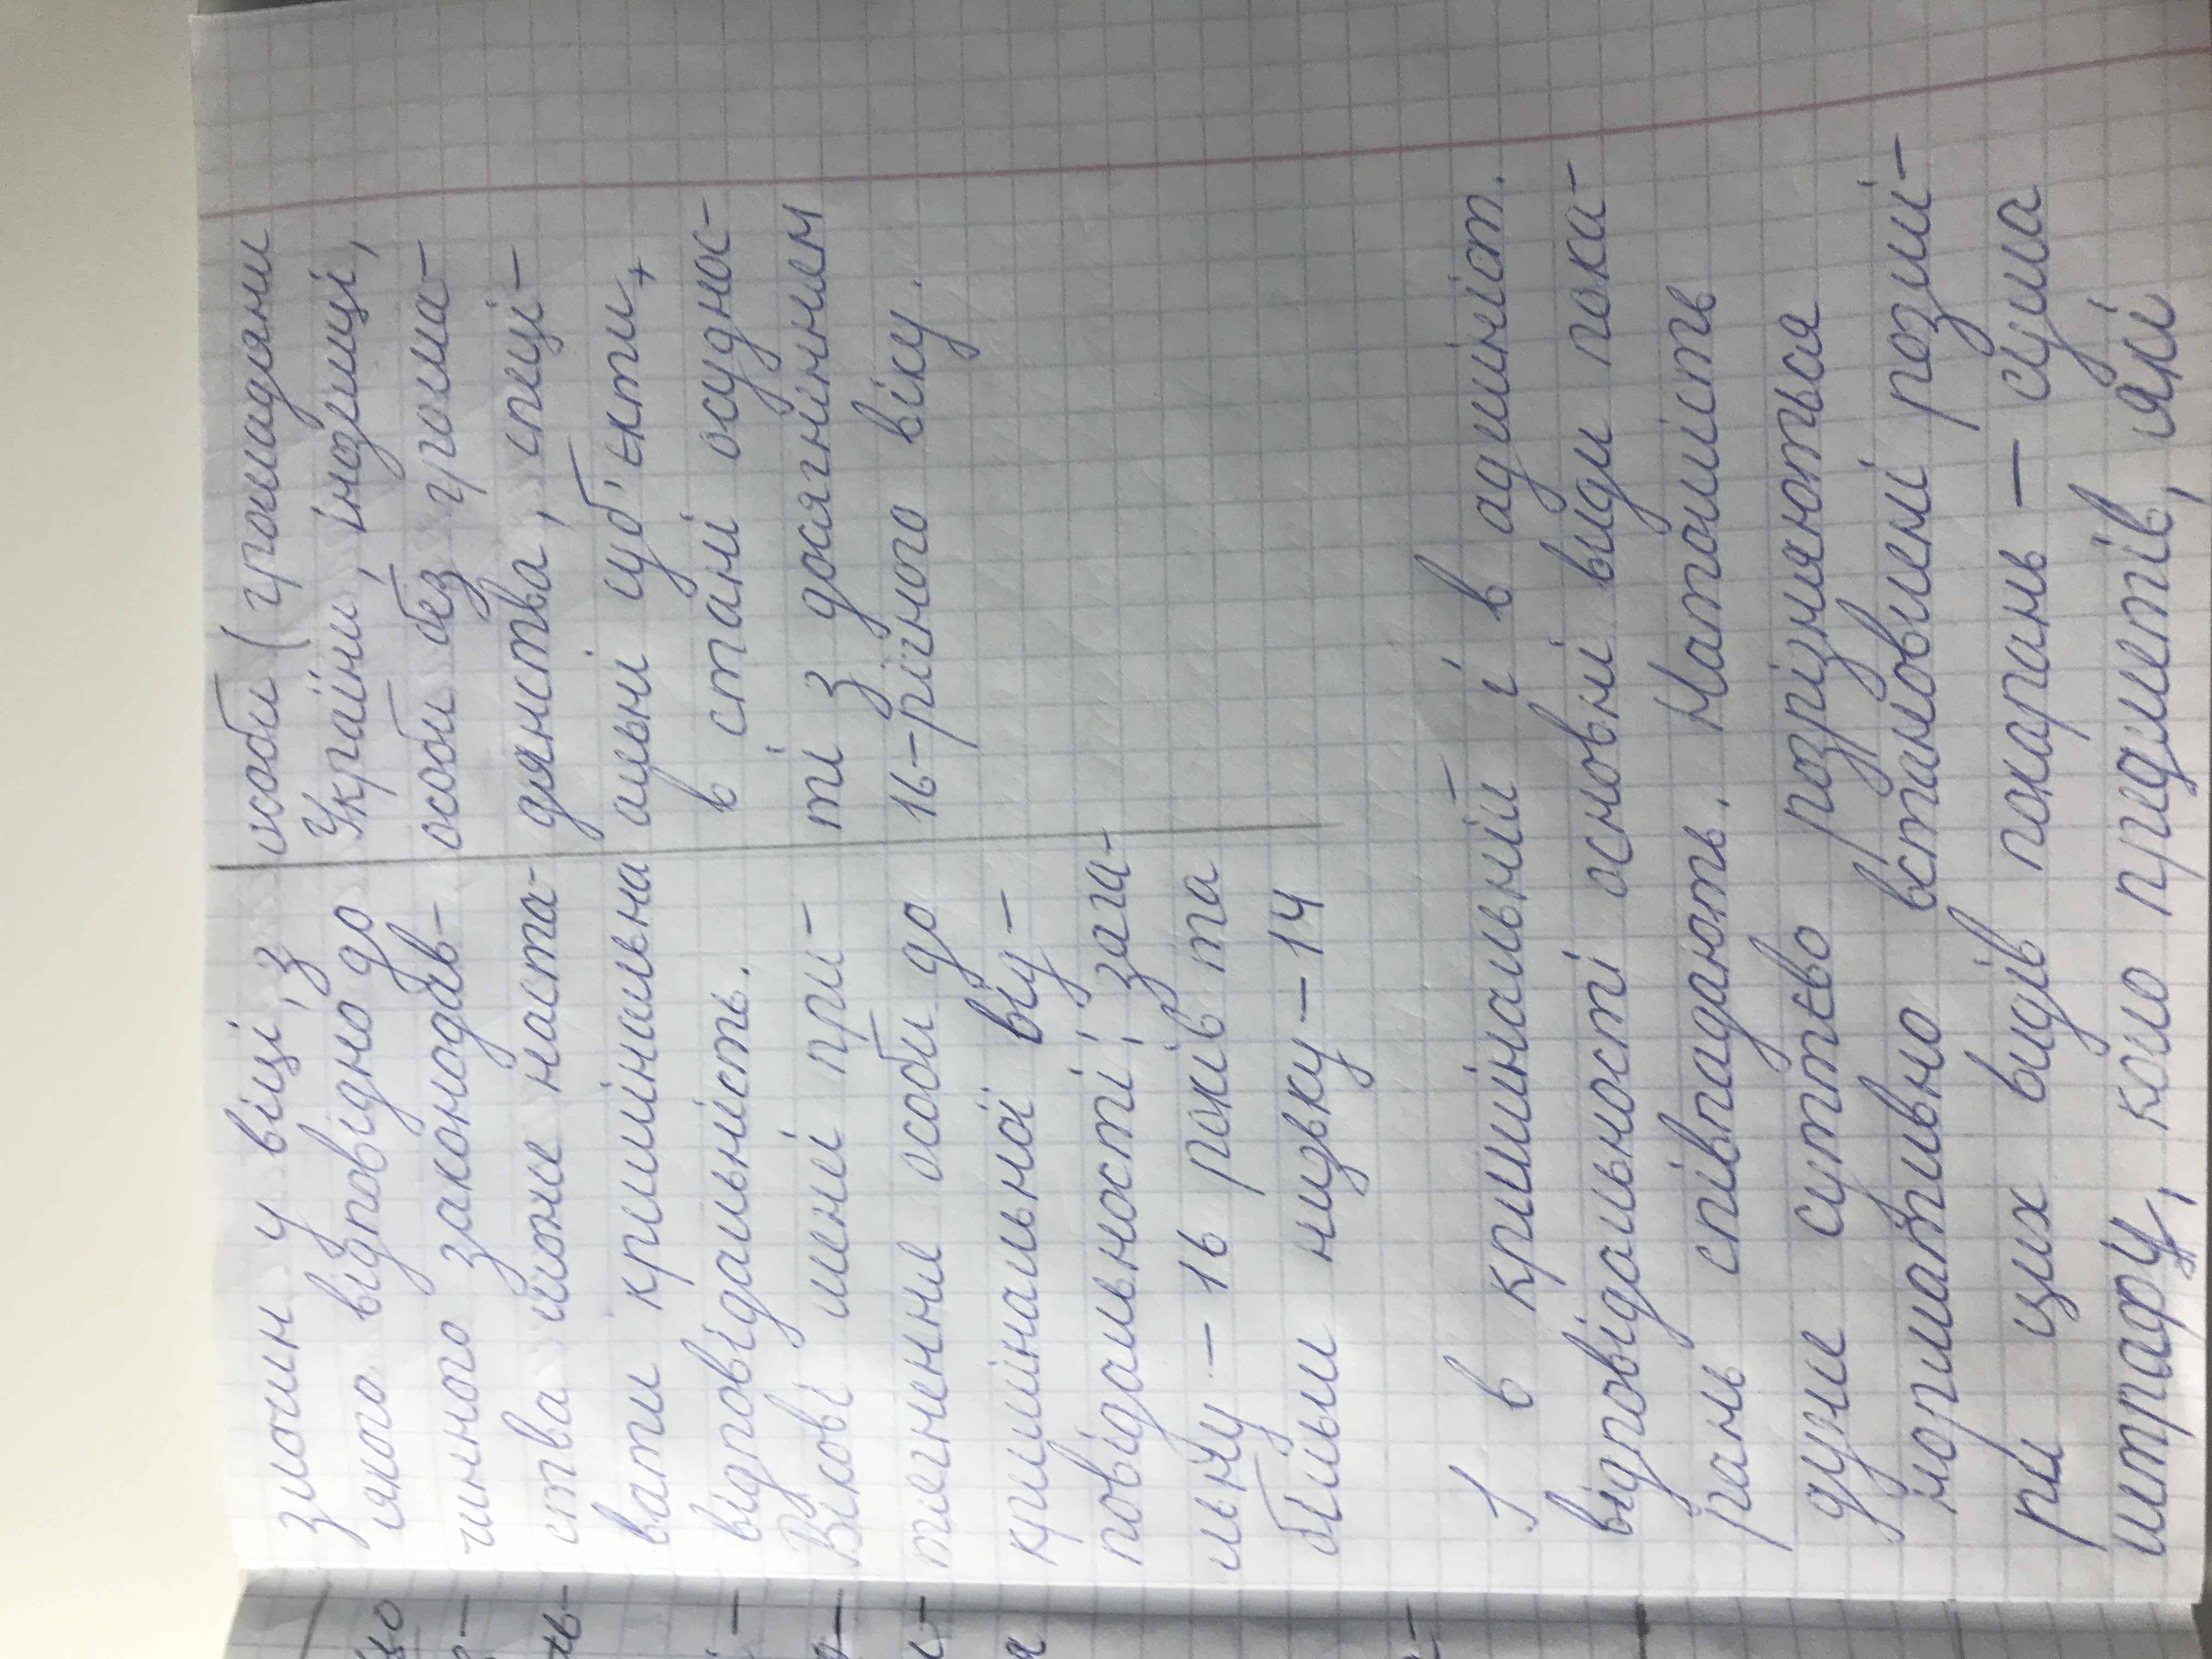 злочин у віці, з
якого відповідно до
чинного законодав-
ства може наста-
вати кримінальна
відповідальність.
Вікові межі при-
тягнення особи до
кримінальної від-
повідальності: зага-
льну – 16 років та
більш низьку – 14
особи (громадяни
України, іноземці,
особи без грома-
дянства, спеці-
альні суб'єкти,
в стані осуднос-
ті з досягненням
16-річного віку.
І в кримінальній і в адмініст.
відповідальності основні види пока-
рань співпадають. Натомість
дуже суттєво розрізняються
нормативно встановлені розмі-
ри цих видів покарань – сума
штрафу, коло предметів, які